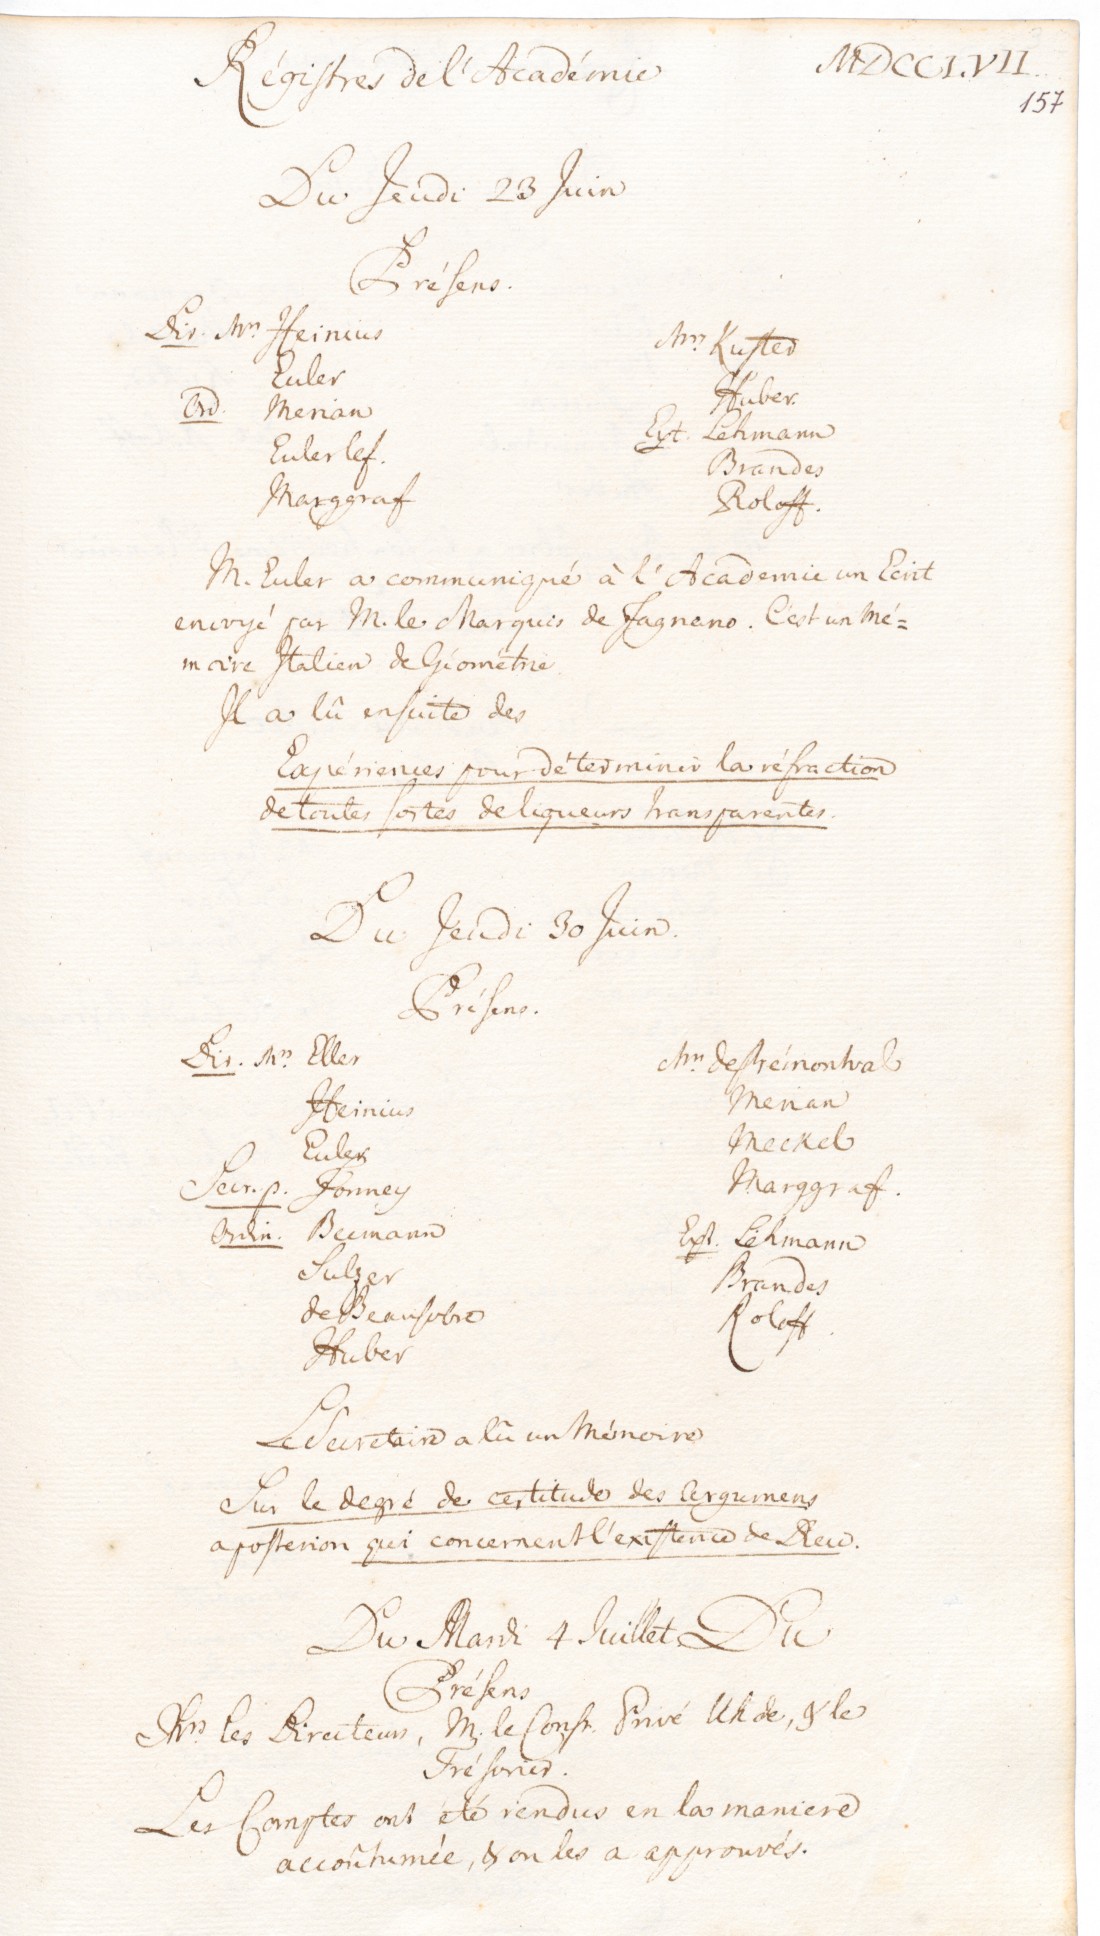 Régistres de l'Académie
MDCCLVII.
157
Du Jeudi 23 Juin
Présens.
Dir. Mrs Heinius
Euler
Ord. Merian
Euler lef.
Marggraf
Mrs Kuster
Huber.
Ext. Lehmann
Brandes
Roloff.
M. Euler a communiqué à l'Academie un Ecrit
envoyé par M. le Marquis de Fagnano. C'est un Mé=
moire Italien de Géometrie
Il a lû ensuite des
Expériences pour déterminer la réfraction
de toutes sortes de liqueurs transparentes.
Du Jeudi 30 Juin.
Présens.
Dir. Mrs Eller
Heinius
Euler
Secr. p. Formey
Ordin. Becmann
Sulzer
de Beausobre
Huber
Mrs de Prémontval
Merian
Meckel
Marggraf.
Ext. Lehmann
Brandes
Roloff.
Le Secretaire a lû un Mémoire
Sur le degré de certitude des Argumens
a posteriori qui concernent l'existence de Dieu.
Du Mardi 4 Juillet. Du
Présens
Mrs les Directeurs, M. le Cons. Privé Uhde, & le
Trésorier.
Les Comptes ont été rendus en la maniere
accoûtumée, & on les a approuvés.